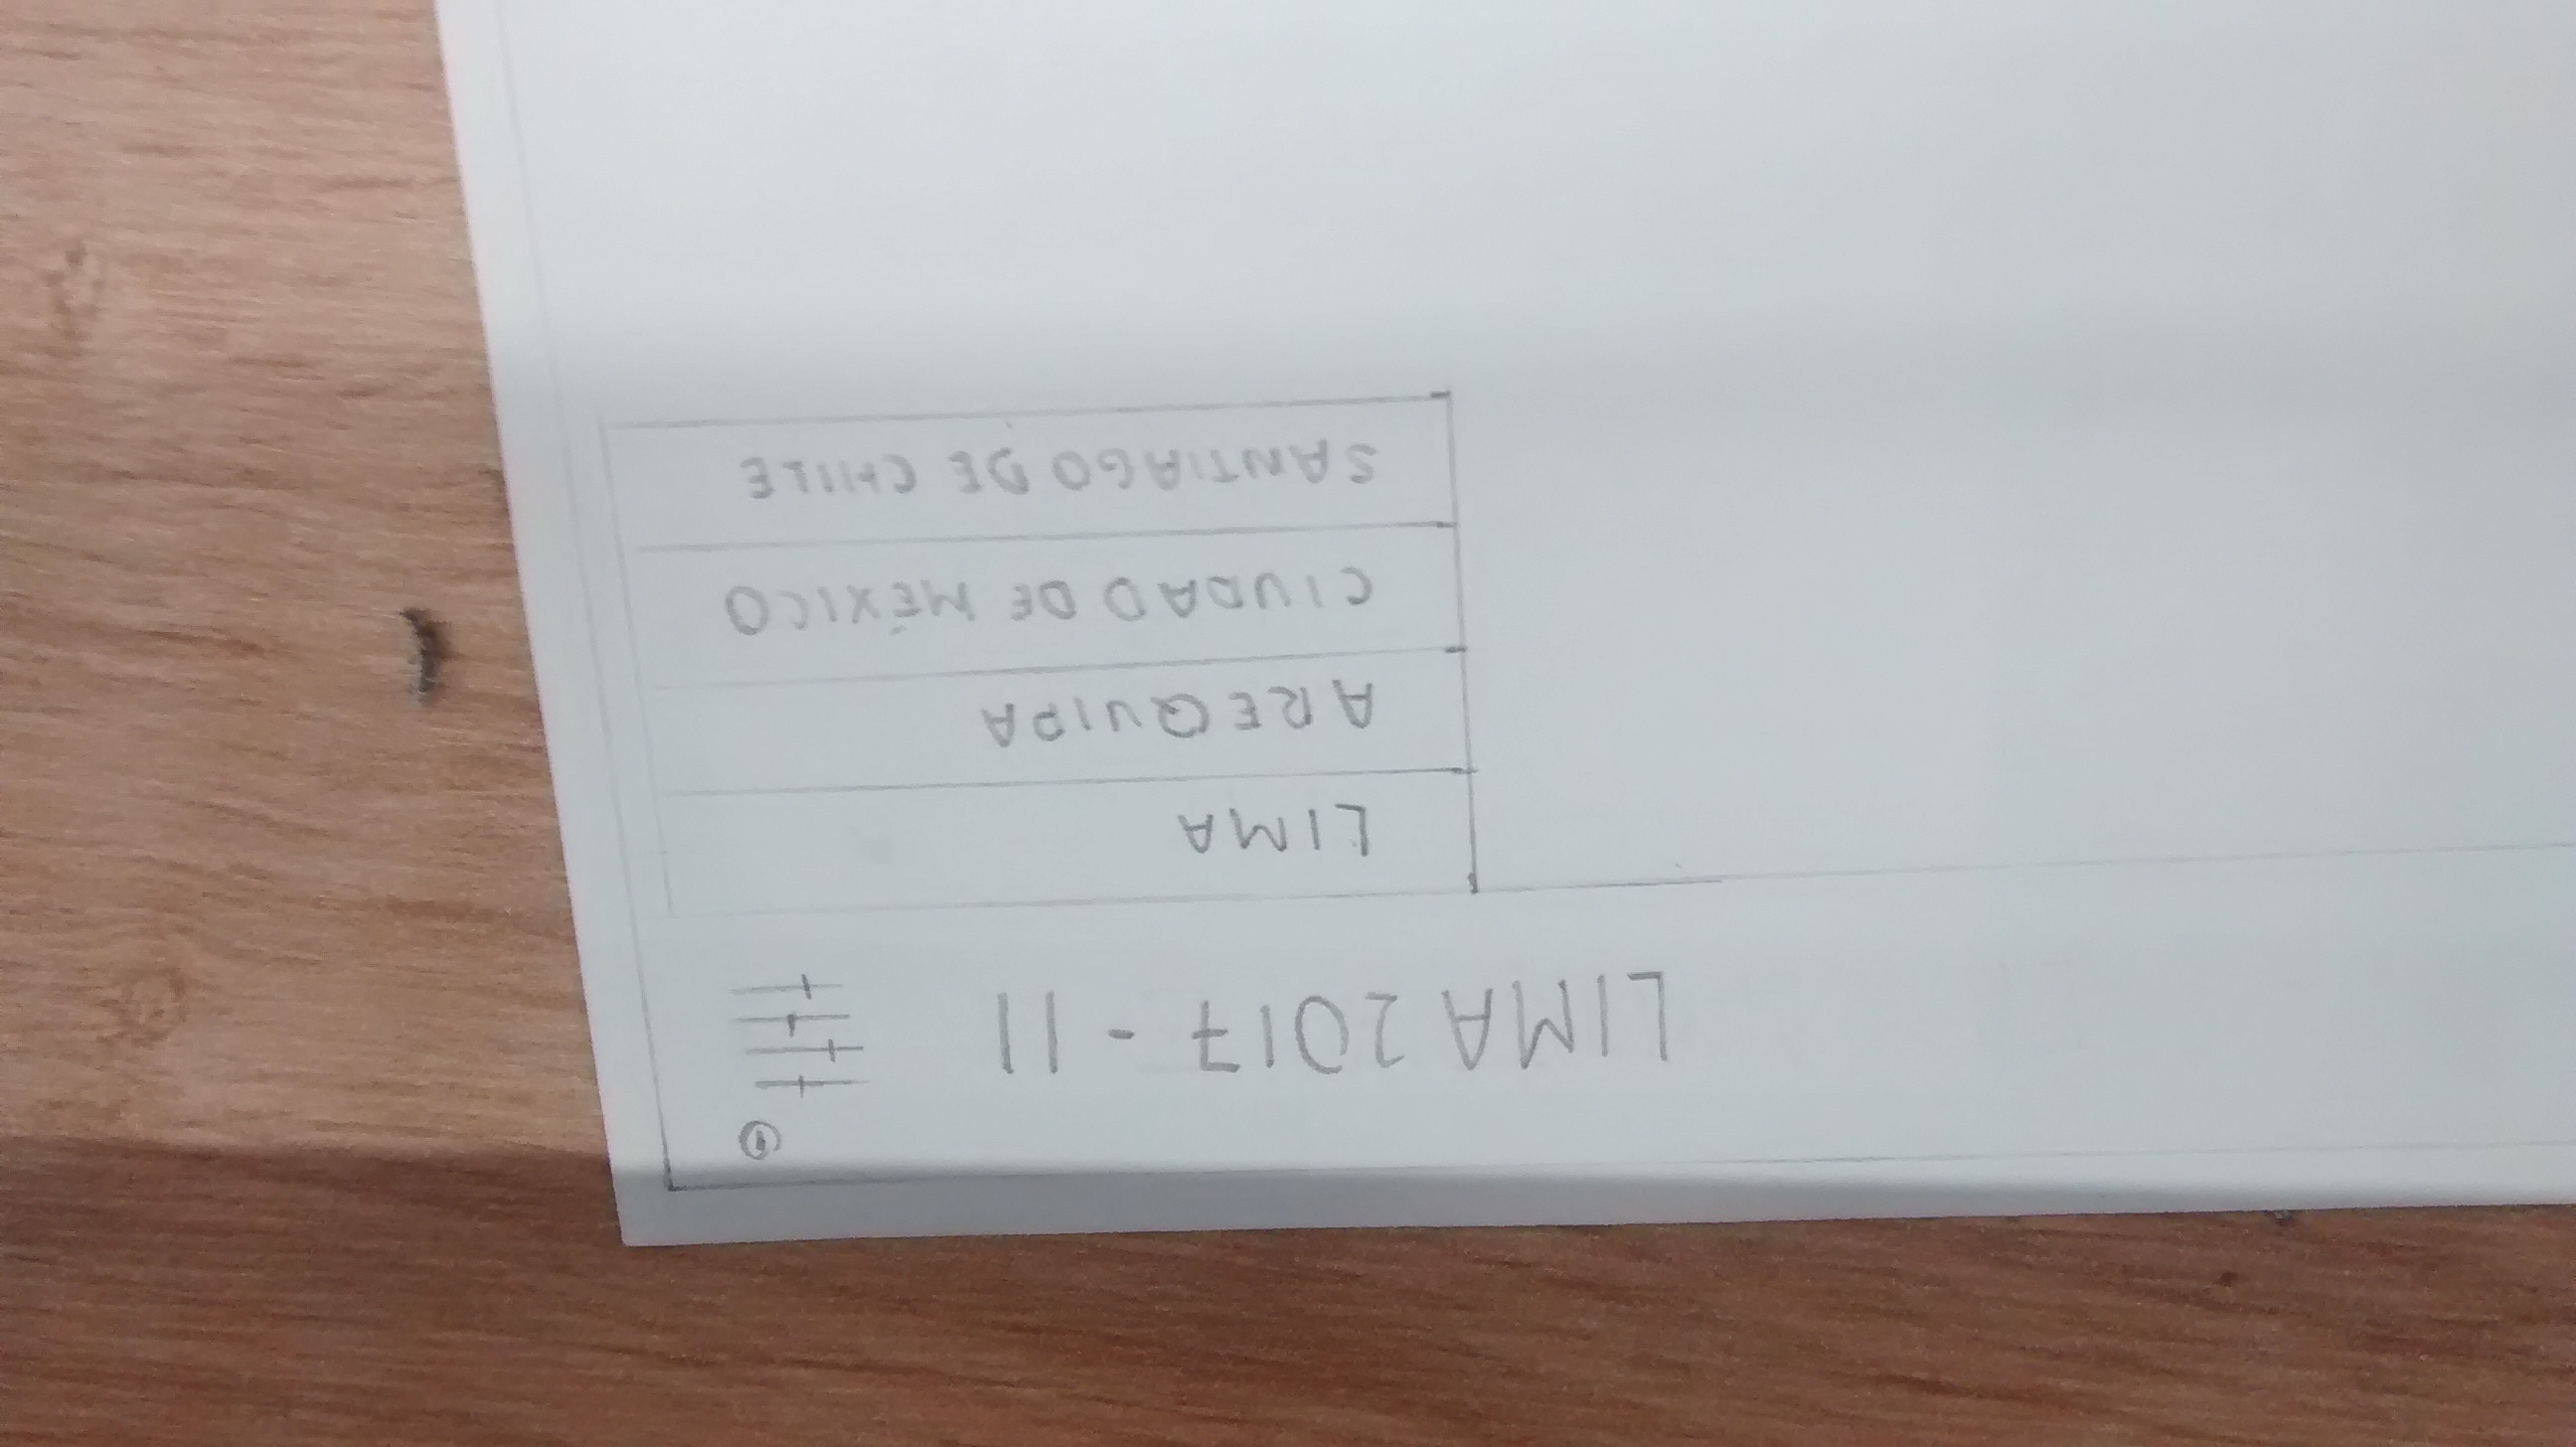 LIMA 2017 - 11
LIMA
AREQUIPA
CIUDAD DE MÉXICO
SANTIAGO DE CHILE